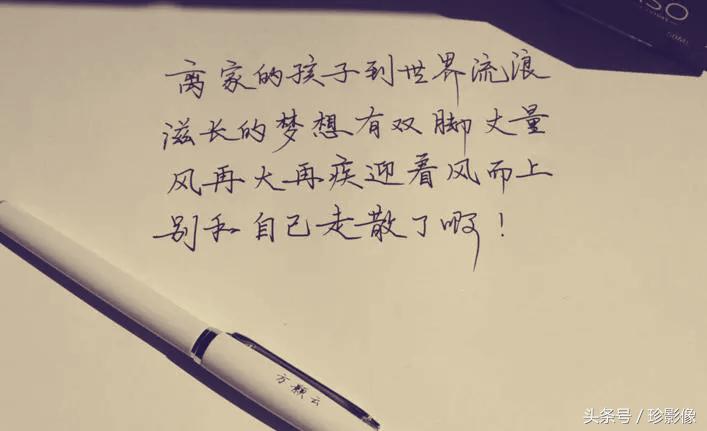 离家的孩子到世界流浪
滋长的梦想有双脚丈量
风再大再疾迎着风而上
别和自己走散了啊！
方颖云
SO
50ML
头条号／珍影像